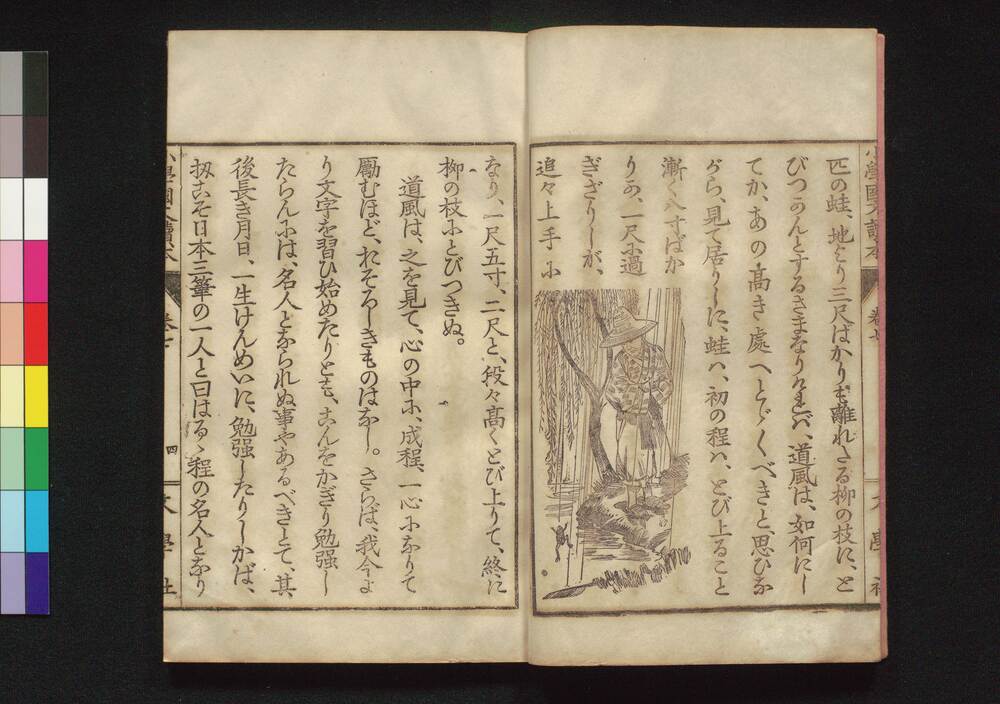 小學國文讀本
卷七
文學社
匹の蛙、地より三尺ばかりも離れたる柳の枝に、と
びつかんとするさまなりければ、道風は、如何にし
てか、あの高き處へとゞくべきと、思ひな
がら、見て居りしに、蛙は、初の程は、とび上ること
漸く八寸ばか
りか、一尺に過
ぎざりしが、
追々上手に
なり、一尺五寸、二尺と、段々高くとび上りて、終に
柳の枝にとびつきぬ。
道風は、之を見て、心の中に、成程、一心になりて
勵むほど、おそろしきものはなし。さらば、我今よ
り文字を習ひ始めたりとも、こんをかぎり勉強し
たらんには、名人となられぬ事やあるべきとて、其
後長き月日、一生けんめいに、勉強したりしかば、
扨こそ日本三筆の一人と曰はるゝ程の名人となり
小學國文讀本
卷七
四
文學社